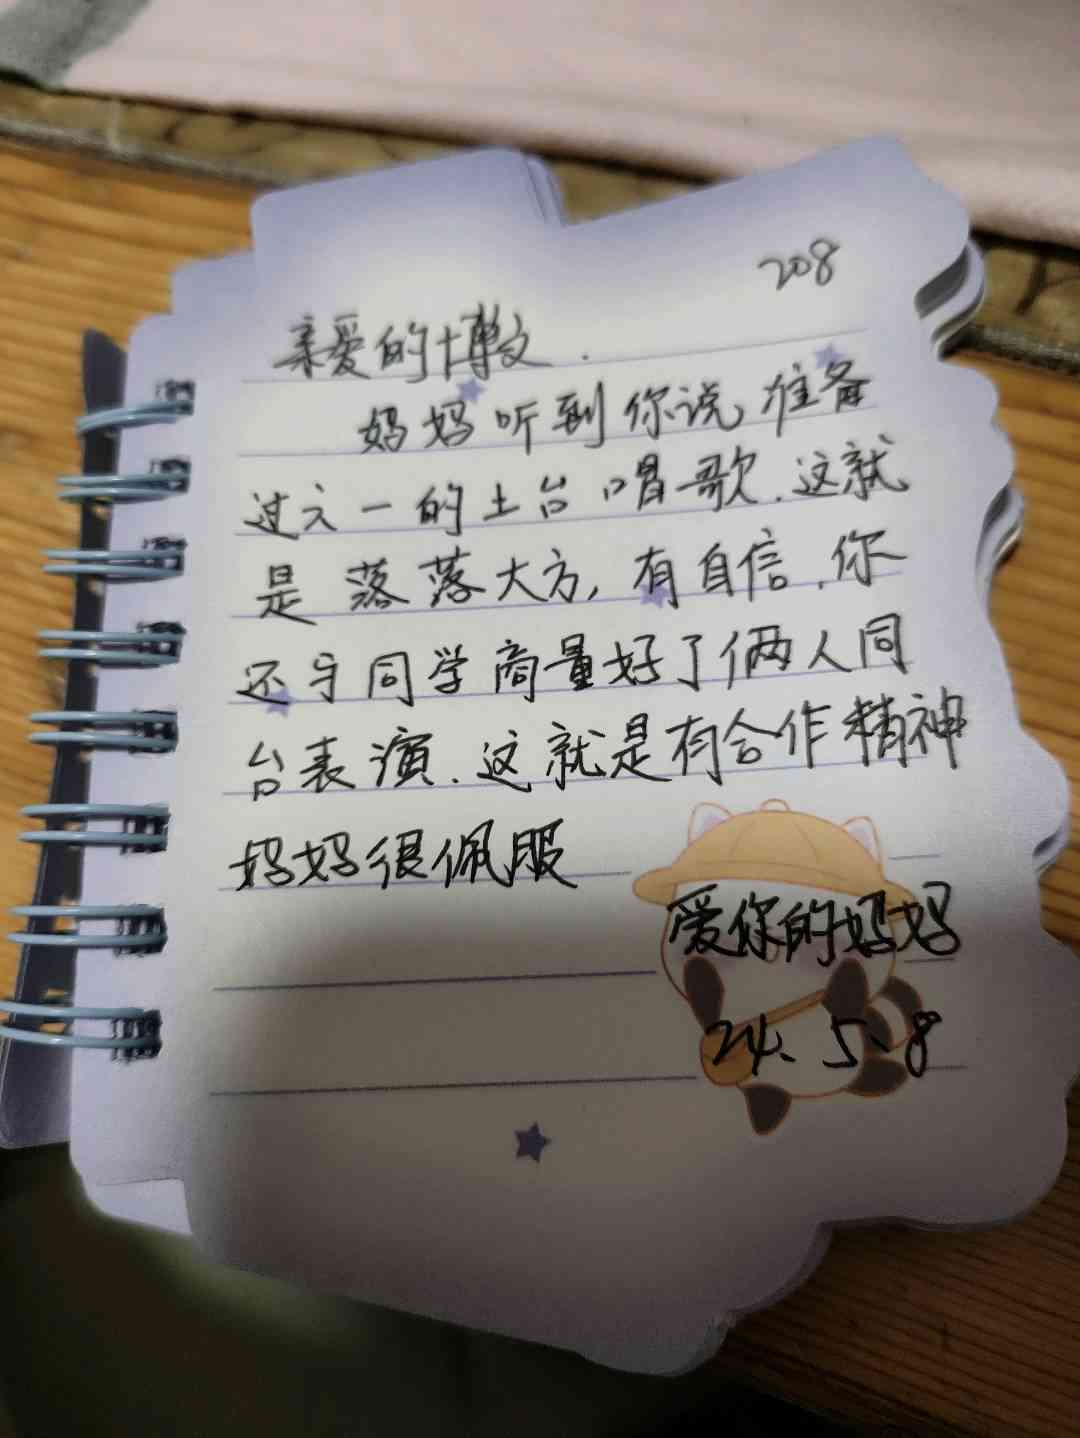 208
亲爱的博文.
妈妈听到你说准备
过六一的上台唱歌.这就
是落落大方,有自信.你
还与同学商量好了俩人同
台表演.这就是有合作精神
妈妈很佩服
爱你的妈妈
24、5、8